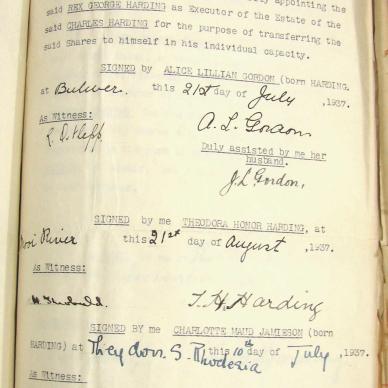 appointing the
said REX GEORGE HARDING as Executor of the Estate of the
said CHARLES HARDING for the purpose of transferring the
said Shares to himself in his individual capacity.
SIGNED by ALICE LILLIAN GORDON (born HARDING.
at Bulwer. this 21st day of July ,1937.
As Witness:
A. L. Gordon
Duly assisted by me her
husband.
J. L. Gordon.
SIGNED by me THEODORA HONOR HARDING, at
Mooi River this 21st day of August ,1937.
As Witness:
T. H. Harding
SIGNED BY me CHARLOTTE MAUD JAMIESON (born
HARDING) at Theydon S. Rhodesia this 10th day of July , 1937.
As Witness: